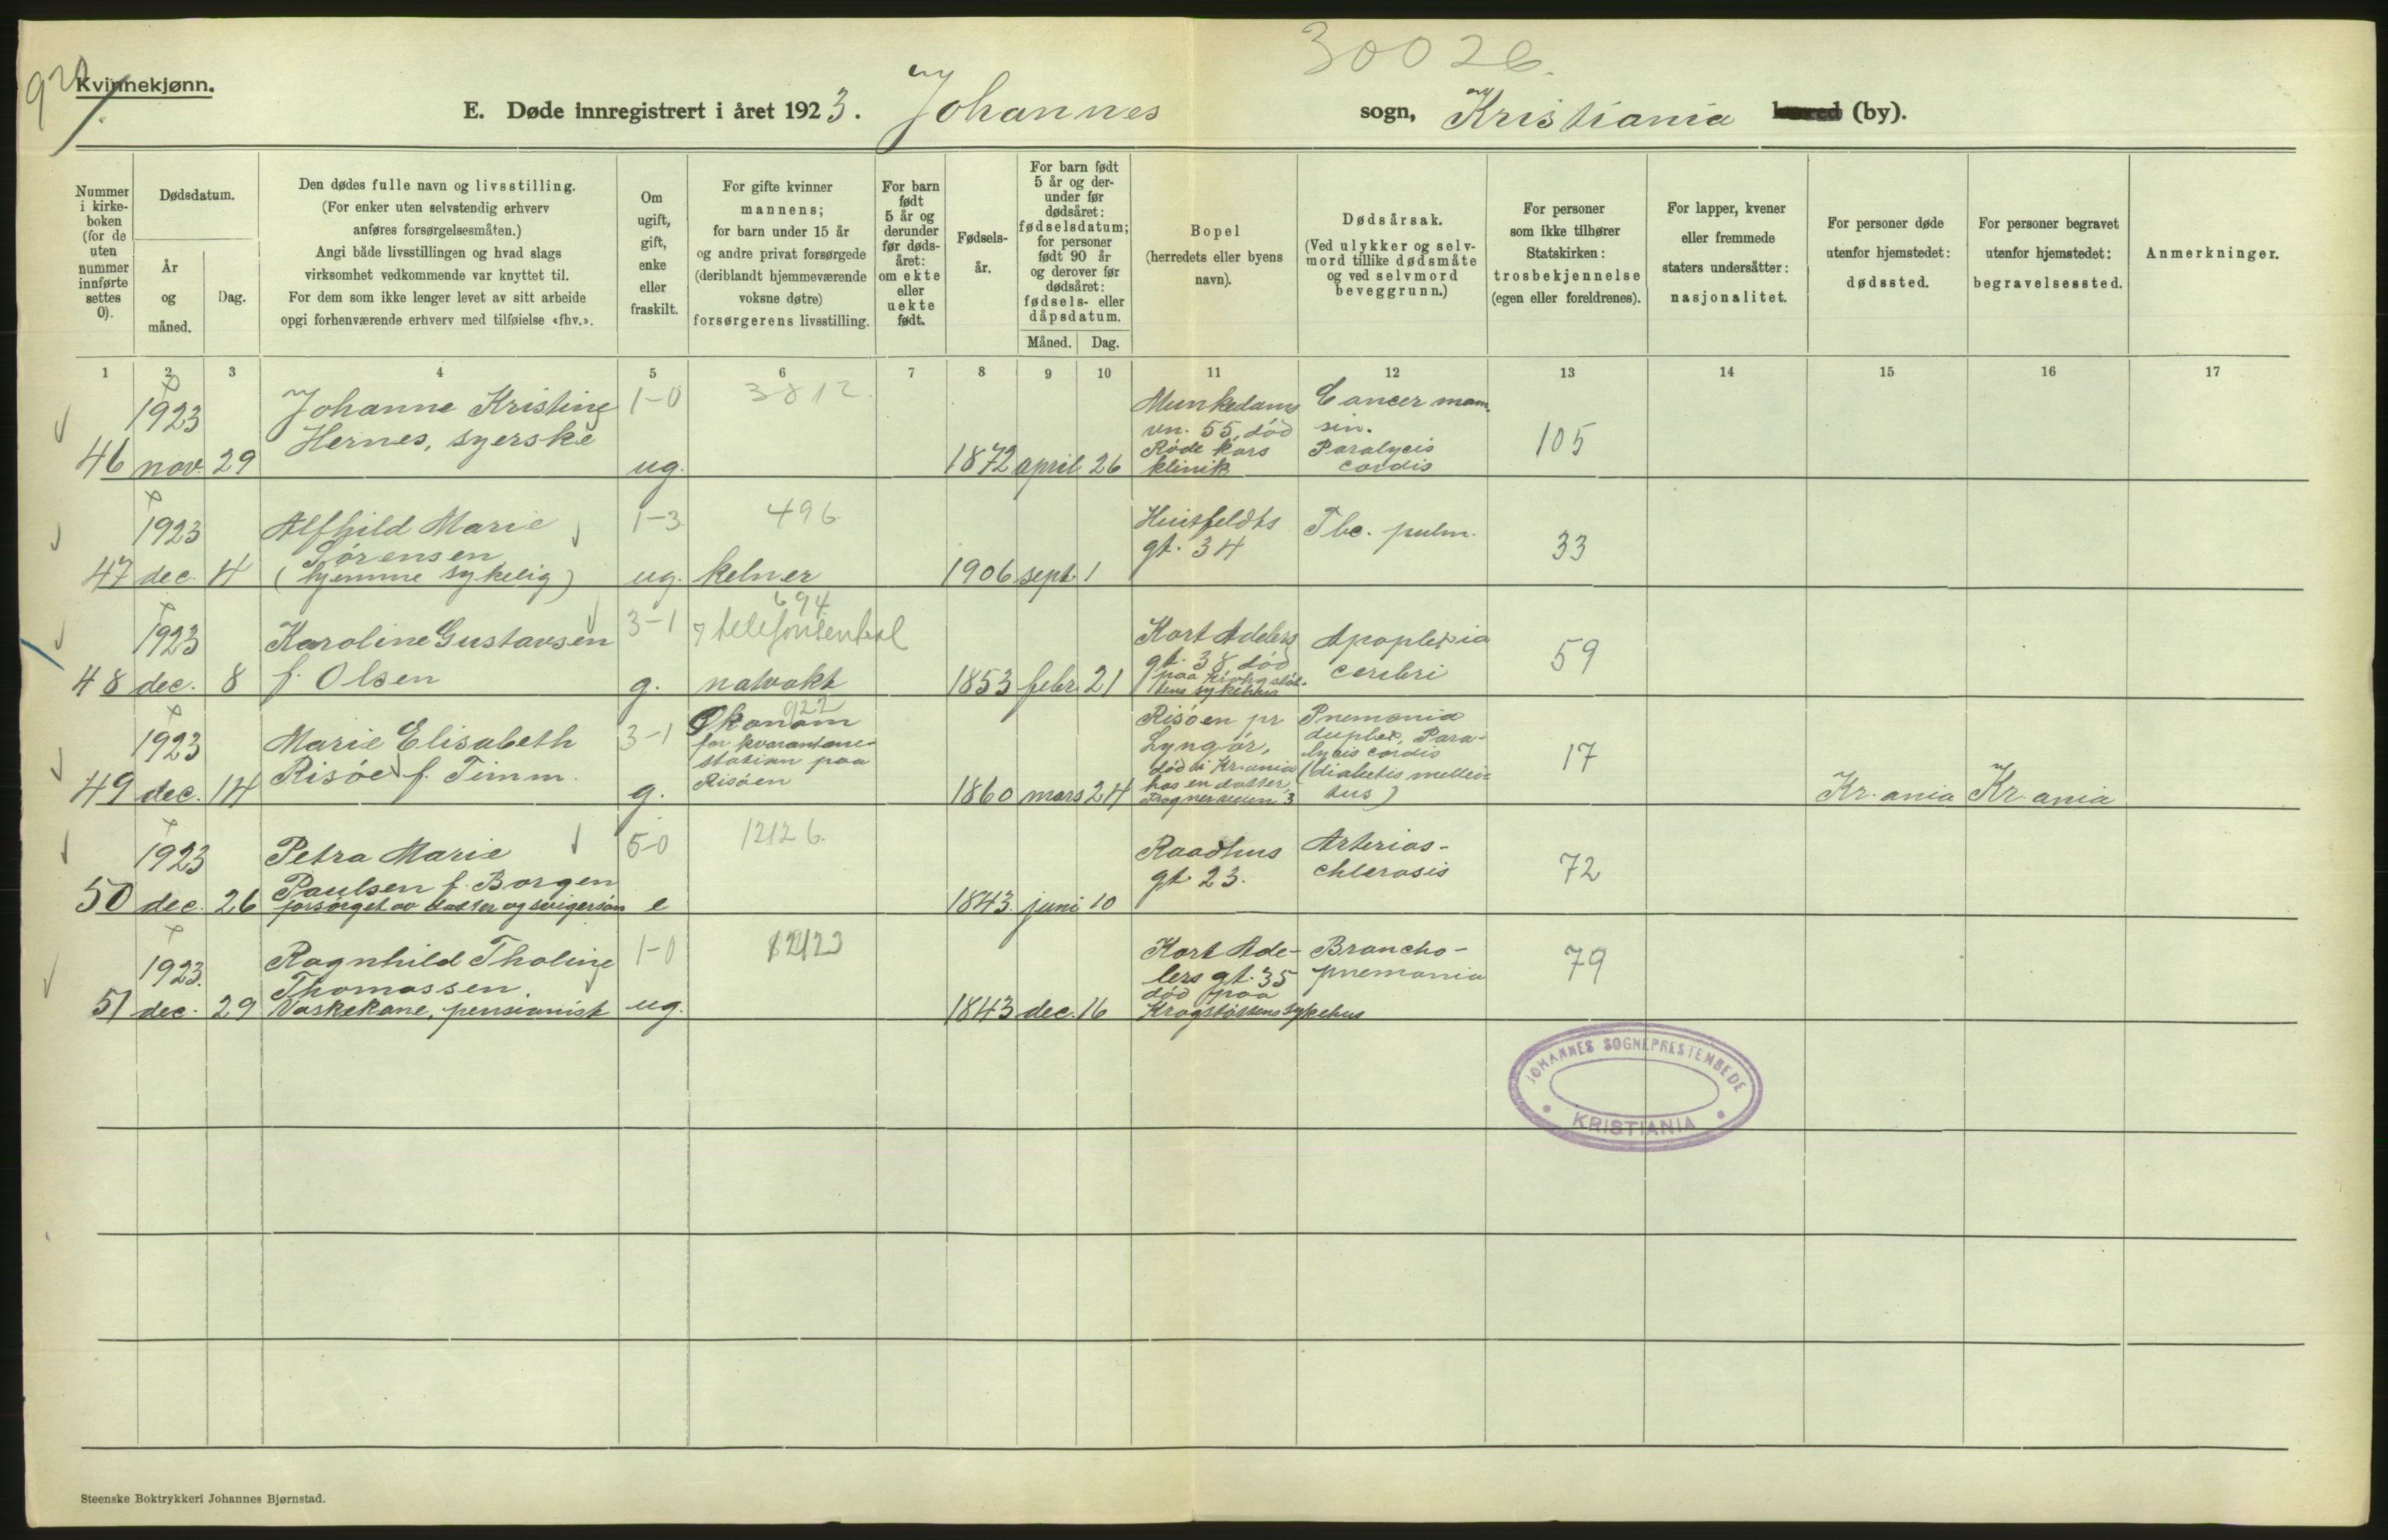 30026.
92
Kvinnekjønn.
E. Døde innregistrert i året 1923. Johannes sogn, Kristiania herred (by).
Nummer i kirke-boken (for de uten nummer innførte settes 0).
Dødsdatum.
År og måned.
Dag.
Den dødes fulle navn og livsstilling.
(For enker uten selvstendig erhverv
anføres forsørgelsesmåten.)
Angi både livsstillingen og hvad slags
virksomhet vedkommende var knyttet til.
For dem som ikke lenger levet av sitt arbeide
opgi forhenværende erhverv med tilføielse «fhv.».
Om ugift, gift, enke eller fraskilt.
For gifte kvinner
mannens;
for barn under 15 år
og andre privat forsørgede
(deriblandt hjemmeværende
voksne døtre)
forsørgerens livsstilling.
For barn født 5 år og derunder før døds-året: om ekte eller uekte født.
Fødsels-år.
For barn født 5 år og der-under før dødsåret: fødselsdatum; for personer født 90 år og derover før dødsåret: fødsels- eller dåpsdatum.
Måned. Dag.
Bopel
(herredets eller byens
navn).
Dødsårsak.
(Ved ulykker og selv-
mord tillike dødsmåte
og ved selvmord
beveggrunn.)
For personer
som ikke tilhører
Statskirken:
trosbekjennelse
(egen eller foreldrenes).
For lapper, kvener
eller fremmede
staters undersåtter:
nasjonalitet.
For personer døde
utenfor hjemstedet:
dødssted.
For personer begravet
utenfor hjemstedet:
begravelsessted.
Anmerkninger.
1 2 3 4 5 6 7 8 9 10 11 12 13 14 15 16 17
1923 Johanne Kristine 1-0 3812. Munkedams Cancer mam.
Hernes, syerske vn. 55, død sin. 105
Røde kors Paralycis
46 nov. 29 ug. 1872 april 26 klinik cordis
1923 Alfhild Marie 1-3 496 Huitfeldts Tbc. pulm.
Sørensen gt. 34 33
47 dec. 4 (hjemme sykelig) ug. kelner 1906 sept. 1
694
1923 Karoline Gustavsen 3-1 telefonsentral Kort Adelers Apoplexia 59
gt. 38, død cerebri
48 dec. 8 f. Olsen g. natvakt 1853 febr. 21 paa Krohgstøt-
tens sykehus
922
1923 Marie Elisabeth 3-1 Økonom Risøen pr Pnemonia
for kvarantæne- Lyngør, duplex, Para-
Risøe f. Timm. station paa død i Kr.ania lycis cordis 17
Risøen hos en datter, (diabetis melli-
49 dec. 14 g. 1860 mars 24 Frognerveien 3 tus) Kr.ania Kr.ania
1923 Petra Marie 5-0 12126. Raadhus Arterios-
Paulsen f. Borgen gt. 23. chlerosis 72
50 dec. 26 forsørget av datter og svigersøn e 1843. juni 10
1923. Ragnhild Tholine 1-0 12123 Kort Ade- Broncho-
Thomassen lers gt. 35 pnemonia 79
død paa
51 dec. 29 Vaskekone, pensionist ug. 1843 dec. 16 Krogstøttens sykehus
JOHANNES SOGNEPRESTEMBEDE
• KRISTIANIA •
Steenske Boktrykkeri Johannes Bjørnstad.